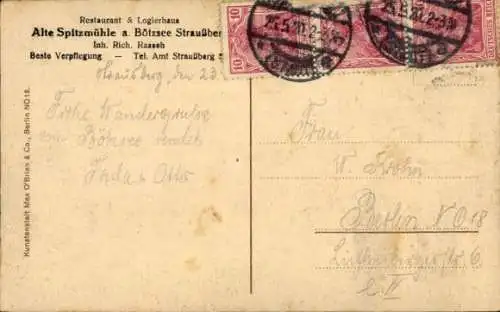 Restaurant & Logierhaus
Alte Spitzmühle a. Bötzsee Straußber
Inh. Rich. Raasch
Beste Verpflegung — Tel. Amt Straußberg
Strausberg, den 23.
Frohe Wandergrüße
vom Bötzsee sendet
Otto
Kunstanstalt Max O'Brien & Co., Berlin NO18.
10
25.5.20.2-3N.
10
Frau
W. Krohn
Berlin NO18
6
II